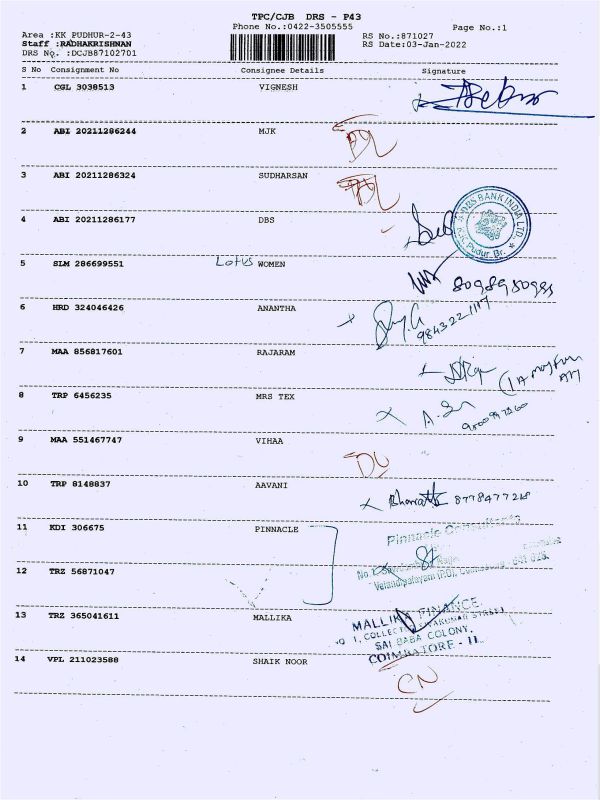 TPC/CJB DRS - P43
Phone No.:0422-3505555
Page No.:1
Area :KK PUDHUR-2-43
RS No.:871027
Staff :RADHAKRISHNAN
RS Date:03-Jan-2022
DRS No. :DCJB87102701
S No Consignment No Consignee Details Signature
1 CGL 3038513 VIGNESH
2 ABI 20211286244 MJK
3 ABI 20211286324 SUDHARSAN
4 ABI 20211286177 DBS
DBS BANK INDIA LTD.
K.K. Pudur. Br.
5 SLM 286699551 Lotus WOMEN
8098950985
6 HRD 324046426 ANANTHA
9843221117
7 MAA 856817601 RAJARAM
8 TRP 6456235 MRS TEX
9 MAA 551467747 VIHAA
10 TRP 8148837 AAVANI
Bharath 8778477218
11 KDI 306675 PINNACLE
Pinnacle Consultants
12 TRZ 56871047
Velandipalayam (PO), Coimbatore - 641 025.
13 TRZ 365041611 MALLIKA
MALLIKA FINANCE,
NO 1, COLLECTOR SIVAKUMAR STREET
SAI BABA COLONY,
COIMBATORE - 11.
14 VPL 211023588 SHAIK NOOR
CN